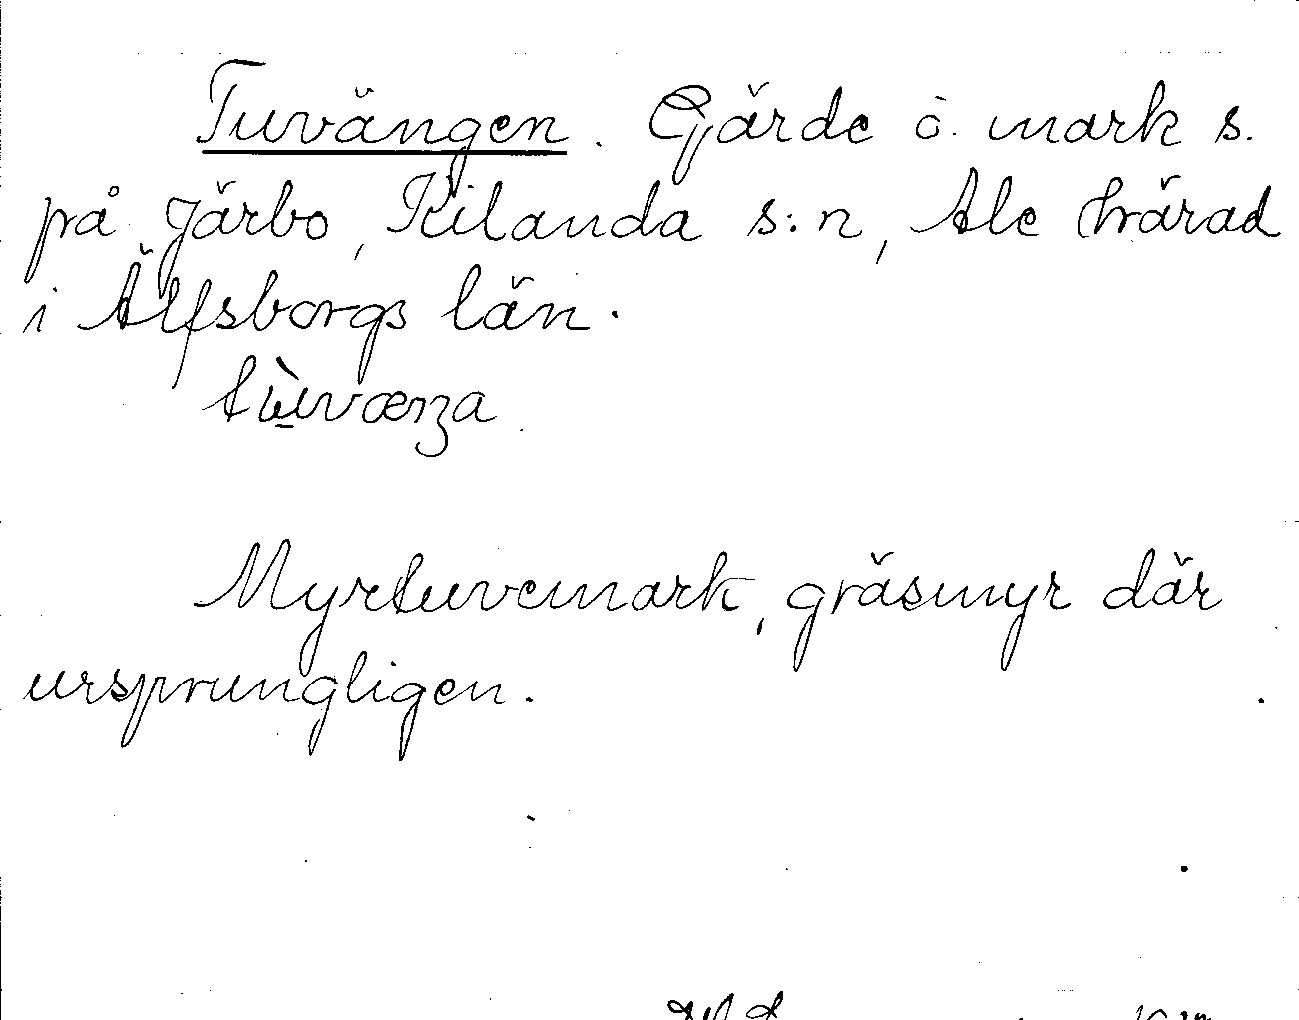 Tuvängen. Gjärde o. mark s.
på Järbo, Kilanda s:n, Ale härad
i Älfsborgs län.
tùvæŋa

Myrtuvemark, gräsmyr där
ursprungligen.